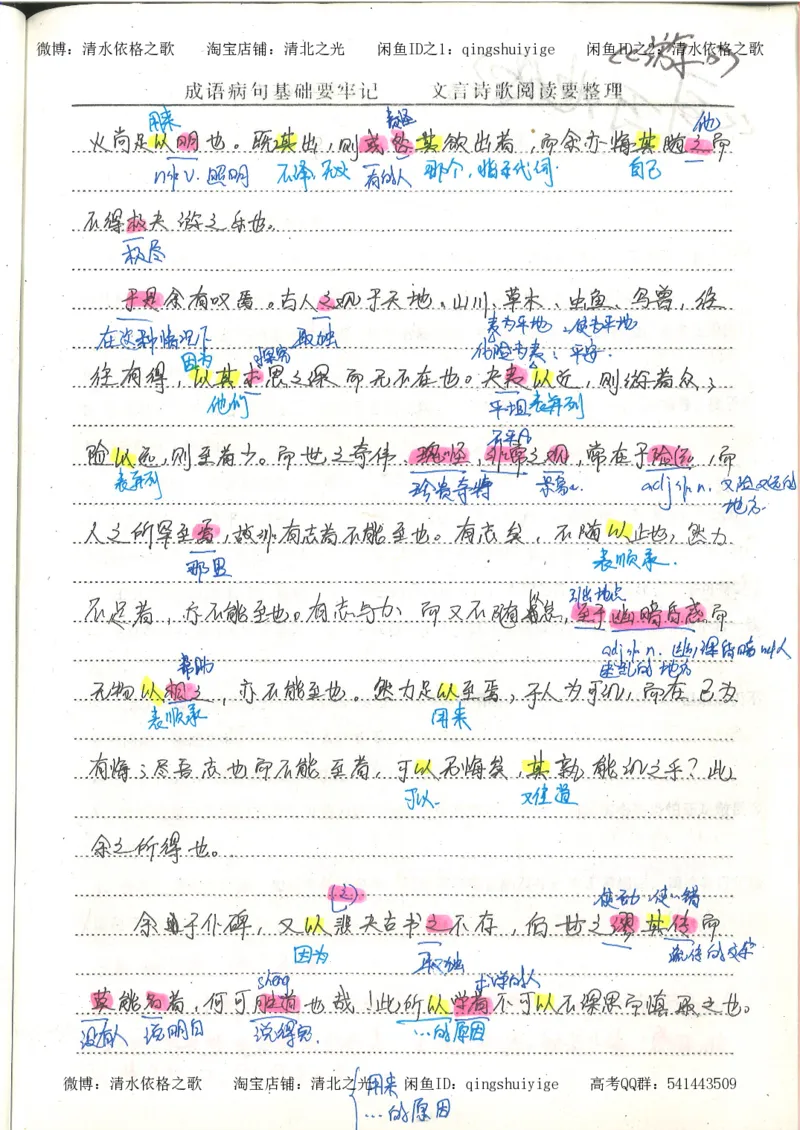 微博：清水依格之歌 淘宝店铺：清北之光 闲鱼ID之1：qingshuiyige 闲鱼ID之2：清水依格之歌
成语病句基础要牢记 文言诗歌阅读要整理
用来 责怪 他
火尚足以明也。既其出，则或咎其欲出者，而余亦悔其随之而
n作v.照明 不译，无义 有的人 那个，指示代词 自己
不得极夫游之乐也。
极尽
于是余有叹焉。古人之观于天地、山川、草木、虫鱼、鸟兽，往
在这种情况下 取独
因为 探究
往有得，以其求思之深而无不在也。夫夷以近，则游者众；
他们 平坦 表并列
险以远，则至者少。而世之奇伟、瑰怪，非常之观，常在于险远，而
表并列 珍贵奇特 景象 adj作n.又险又远的
地方
人之所罕至焉，故非有志者不能至也。有志矣，不随以止也，然力
那里 表顺承.
引出地点
不足者，亦不能至也。有志与力，而又不随怠，至于幽暗昏惑而
adj作n.
帮助
无物以相之，亦不能至也。然力足以至焉，于人为可讥，而在己为
表顺承 用来
有悔；尽吾志也而不能至者，可以无悔矣，其孰能讥之乎？此
可以. 难道
余之所得也。
(之) 使动，使…错
余于仆碑，又以悲夫古书之不存，后世之谬其传而
因为 取独 流传的文字
sheng 求学的人
莫能名者，何可胜道也哉！此所以学者不可以不深思而慎取之也。
没有人 说明白 说得完. …的原因
微博：清水依格之歌 淘宝店铺：清北之光 闲鱼ID：qingshuiyige 高考QQ群：541443509
用来
…的原因